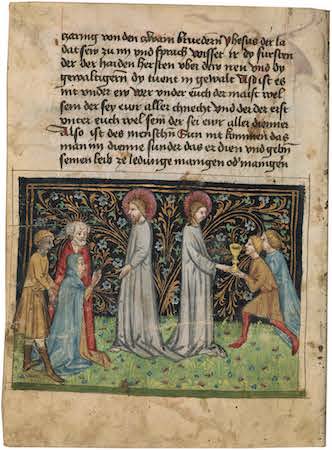 zarnig von den czwain bruedern yhesus der la
dat sew zu im und sprach wisset ir dy fursten
der der haiden hersten uber dew nen und dy
gewaltigern dy tuent in gewalt Also ist es
nit under ew wer under euch der maist wel
sein der sey ewr aller chnecht und der der erst
unter euch wel sein der sei ewr aller dienner
Also ist des menschn Sun nit kummen das
man im dienne sunder das er dien und geb
seinen leib ze ledunge manigen